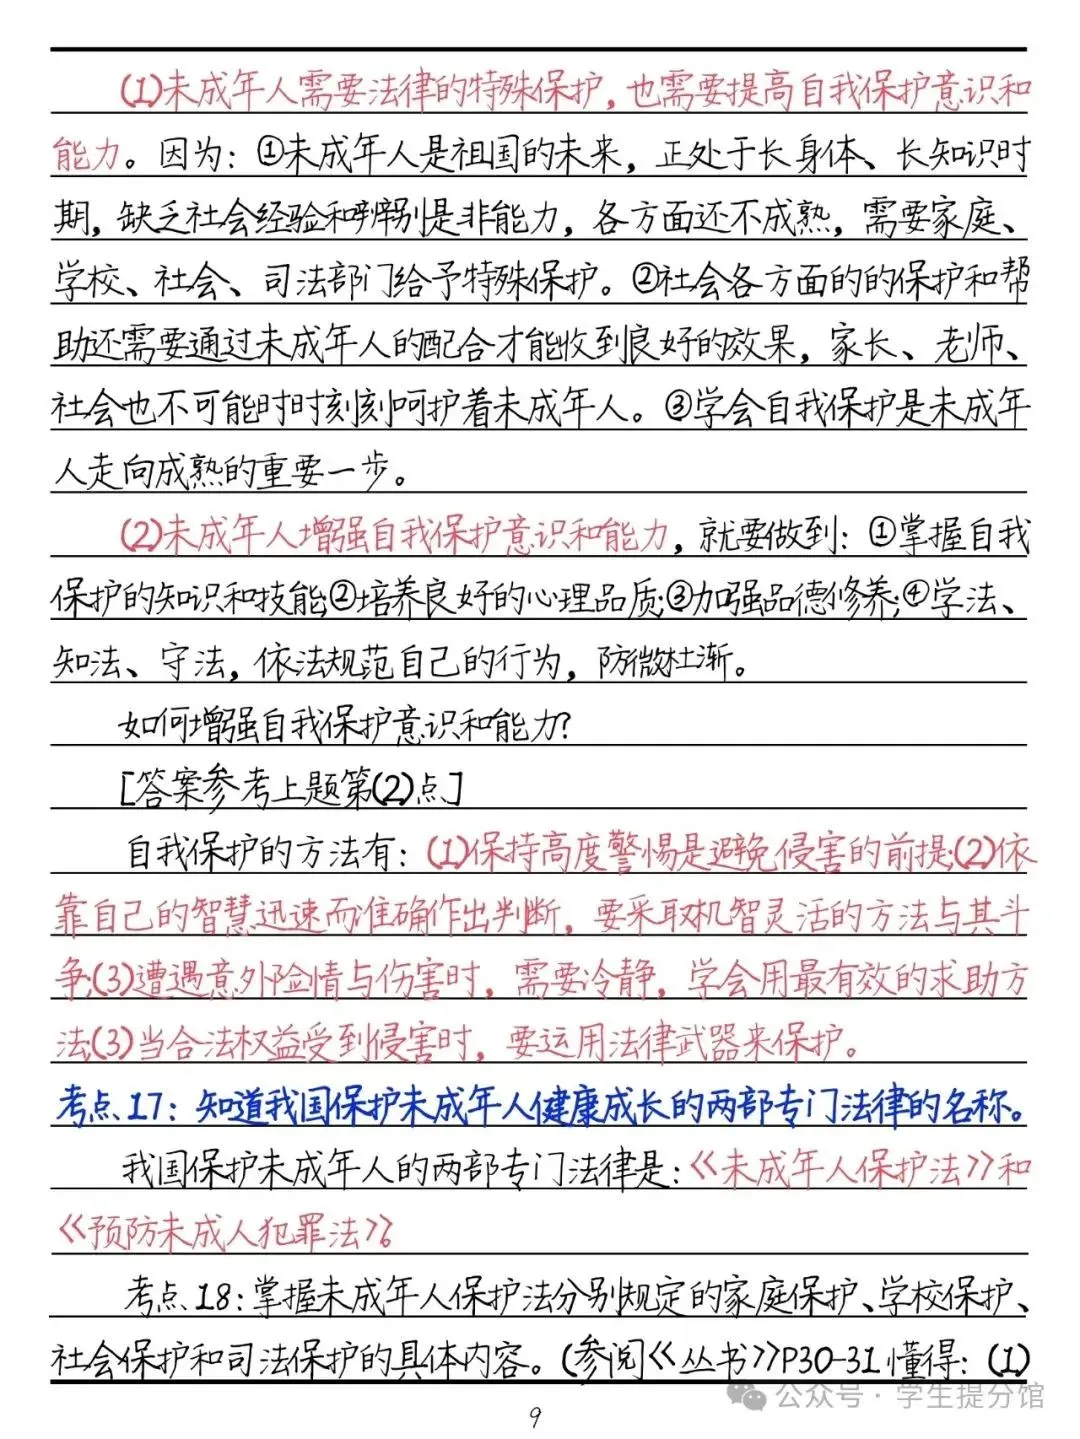 (1)未成年人需要法律的特殊保护,也需要提高自我保护意识和
能力。因为:①未成年人是祖国的未来,正处于长身体、长知识时
期,缺乏社会经验和辨别是非能力,各方面还不成熟,需要家庭、
学校、社会、司法部门给予特殊保护。②社会各方面的的保护和帮
助还需要通过未成年人的配合才能收到良好的效果,家长、老师、
社会也不可能时时刻刻呵护着未成年人。③学会自我保护是未成年
人走向成熟的重要一步。
(2)未成年人增强自我保护意识和能力,就要做到:①掌握自我
保护的知识和技能;②培养良好的心理品质;③加强品德修养;④学法、
知法、守法,依法规范自己的行为,防微杜渐。
如何增强自我保护意识和能力?
[答案参考上题第(2)点]
自我保护的方法有:(1)保持高度警惕是避免侵害的前提;(2)依
靠自己的智慧迅速而准确作出判断,要采取机智灵活的方法与其斗
争;(3)遭遇意外险情与伤害时,需要冷静,学会用最有效的求助方
法;(3)当合法权益受到侵害时,要运用法律武器来保护。
考点17:知道我国保护未成年人健康成长的两部专门法律的名称。
我国保护未成年人的两部专门法律是:《未成年人保护法》和
《预防未成人犯罪法》。
考点18:掌握未成年人保护法分别规定的家庭保护、学校保护、
社会保护和司法保护的具体内容。(参阅《丛书》P30-31懂得:(1)
公众号·学生提分馆
9